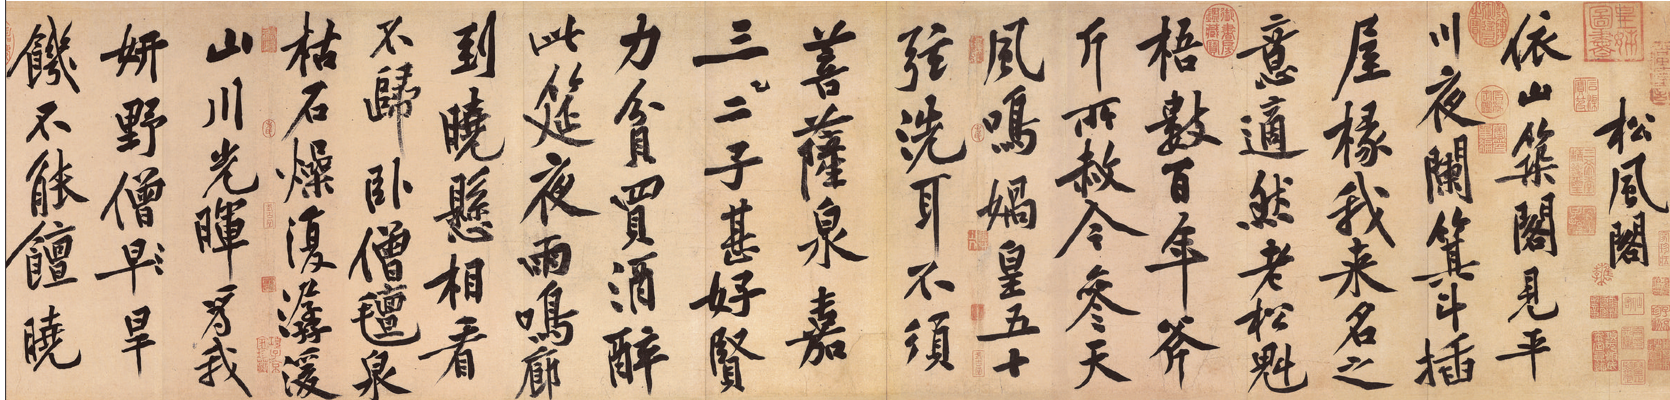 松風閣
依山築閣見平
川夜闌箕斗插
屋椽我来名之
意適然老松魁
梧數百年斧
斤所赦今參天
風鳴媧皇五十
弦洗耳不須
菩薩泉嘉
三二子甚好賢
力貧買酒醉
此筵夜雨鳴廊
到曉懸相看
不歸臥僧氊泉
枯石燥復潺湲
山川光暉為我
妍野僧早旱
饑不能饘曉